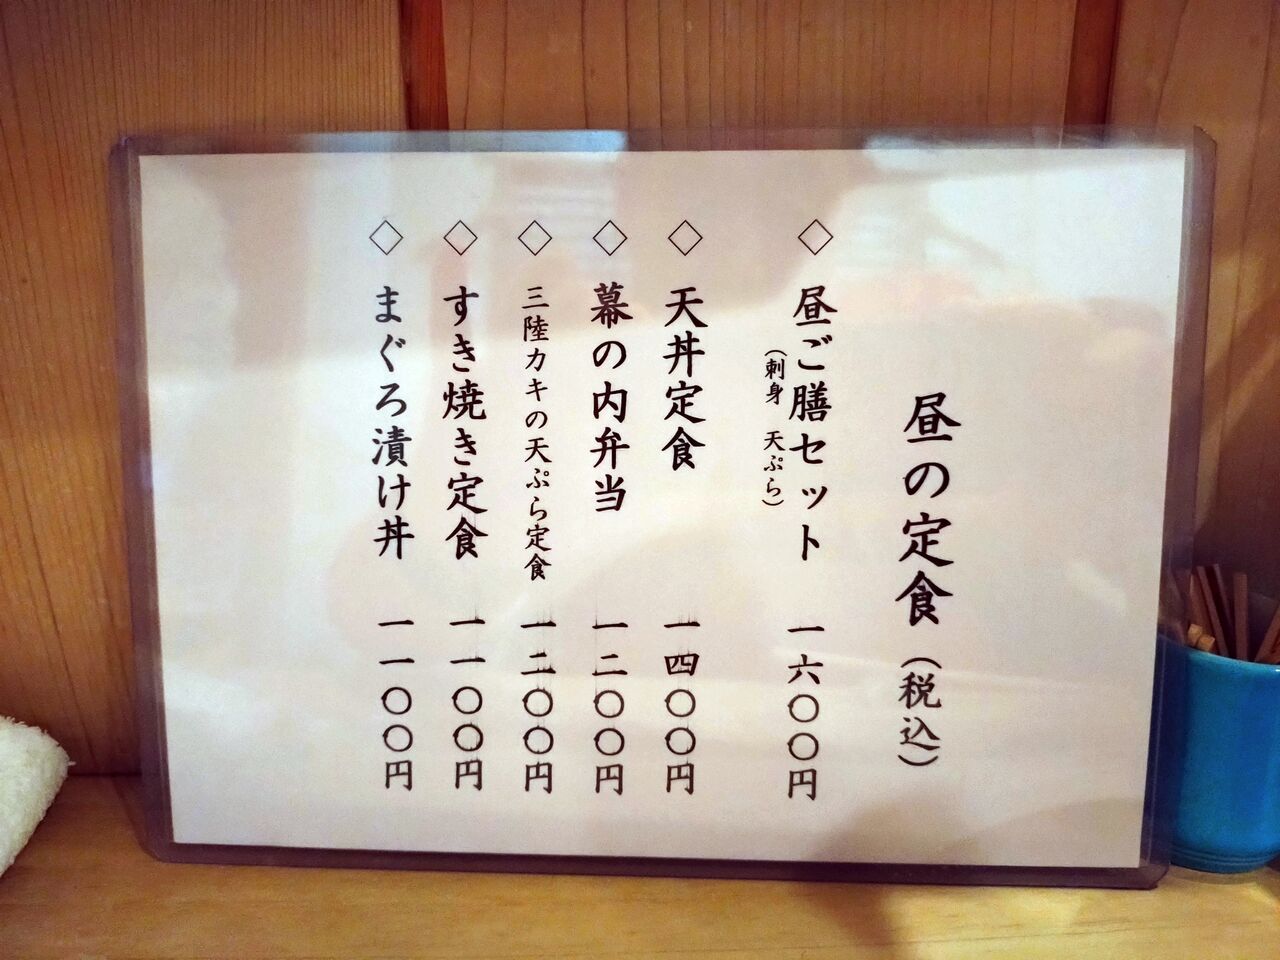 昼の定食（税込）
◇ 昼ご膳セット 一六〇〇円
（刺身 天ぷら）
◇ 天丼定食 一四〇〇円
◇ 幕の内弁当 一二〇〇円
◇ 三陸カキの天ぷら定食 一二〇〇円
◇ すき焼き定食 一一〇〇円
◇ まぐろ漬け丼 一一〇〇円